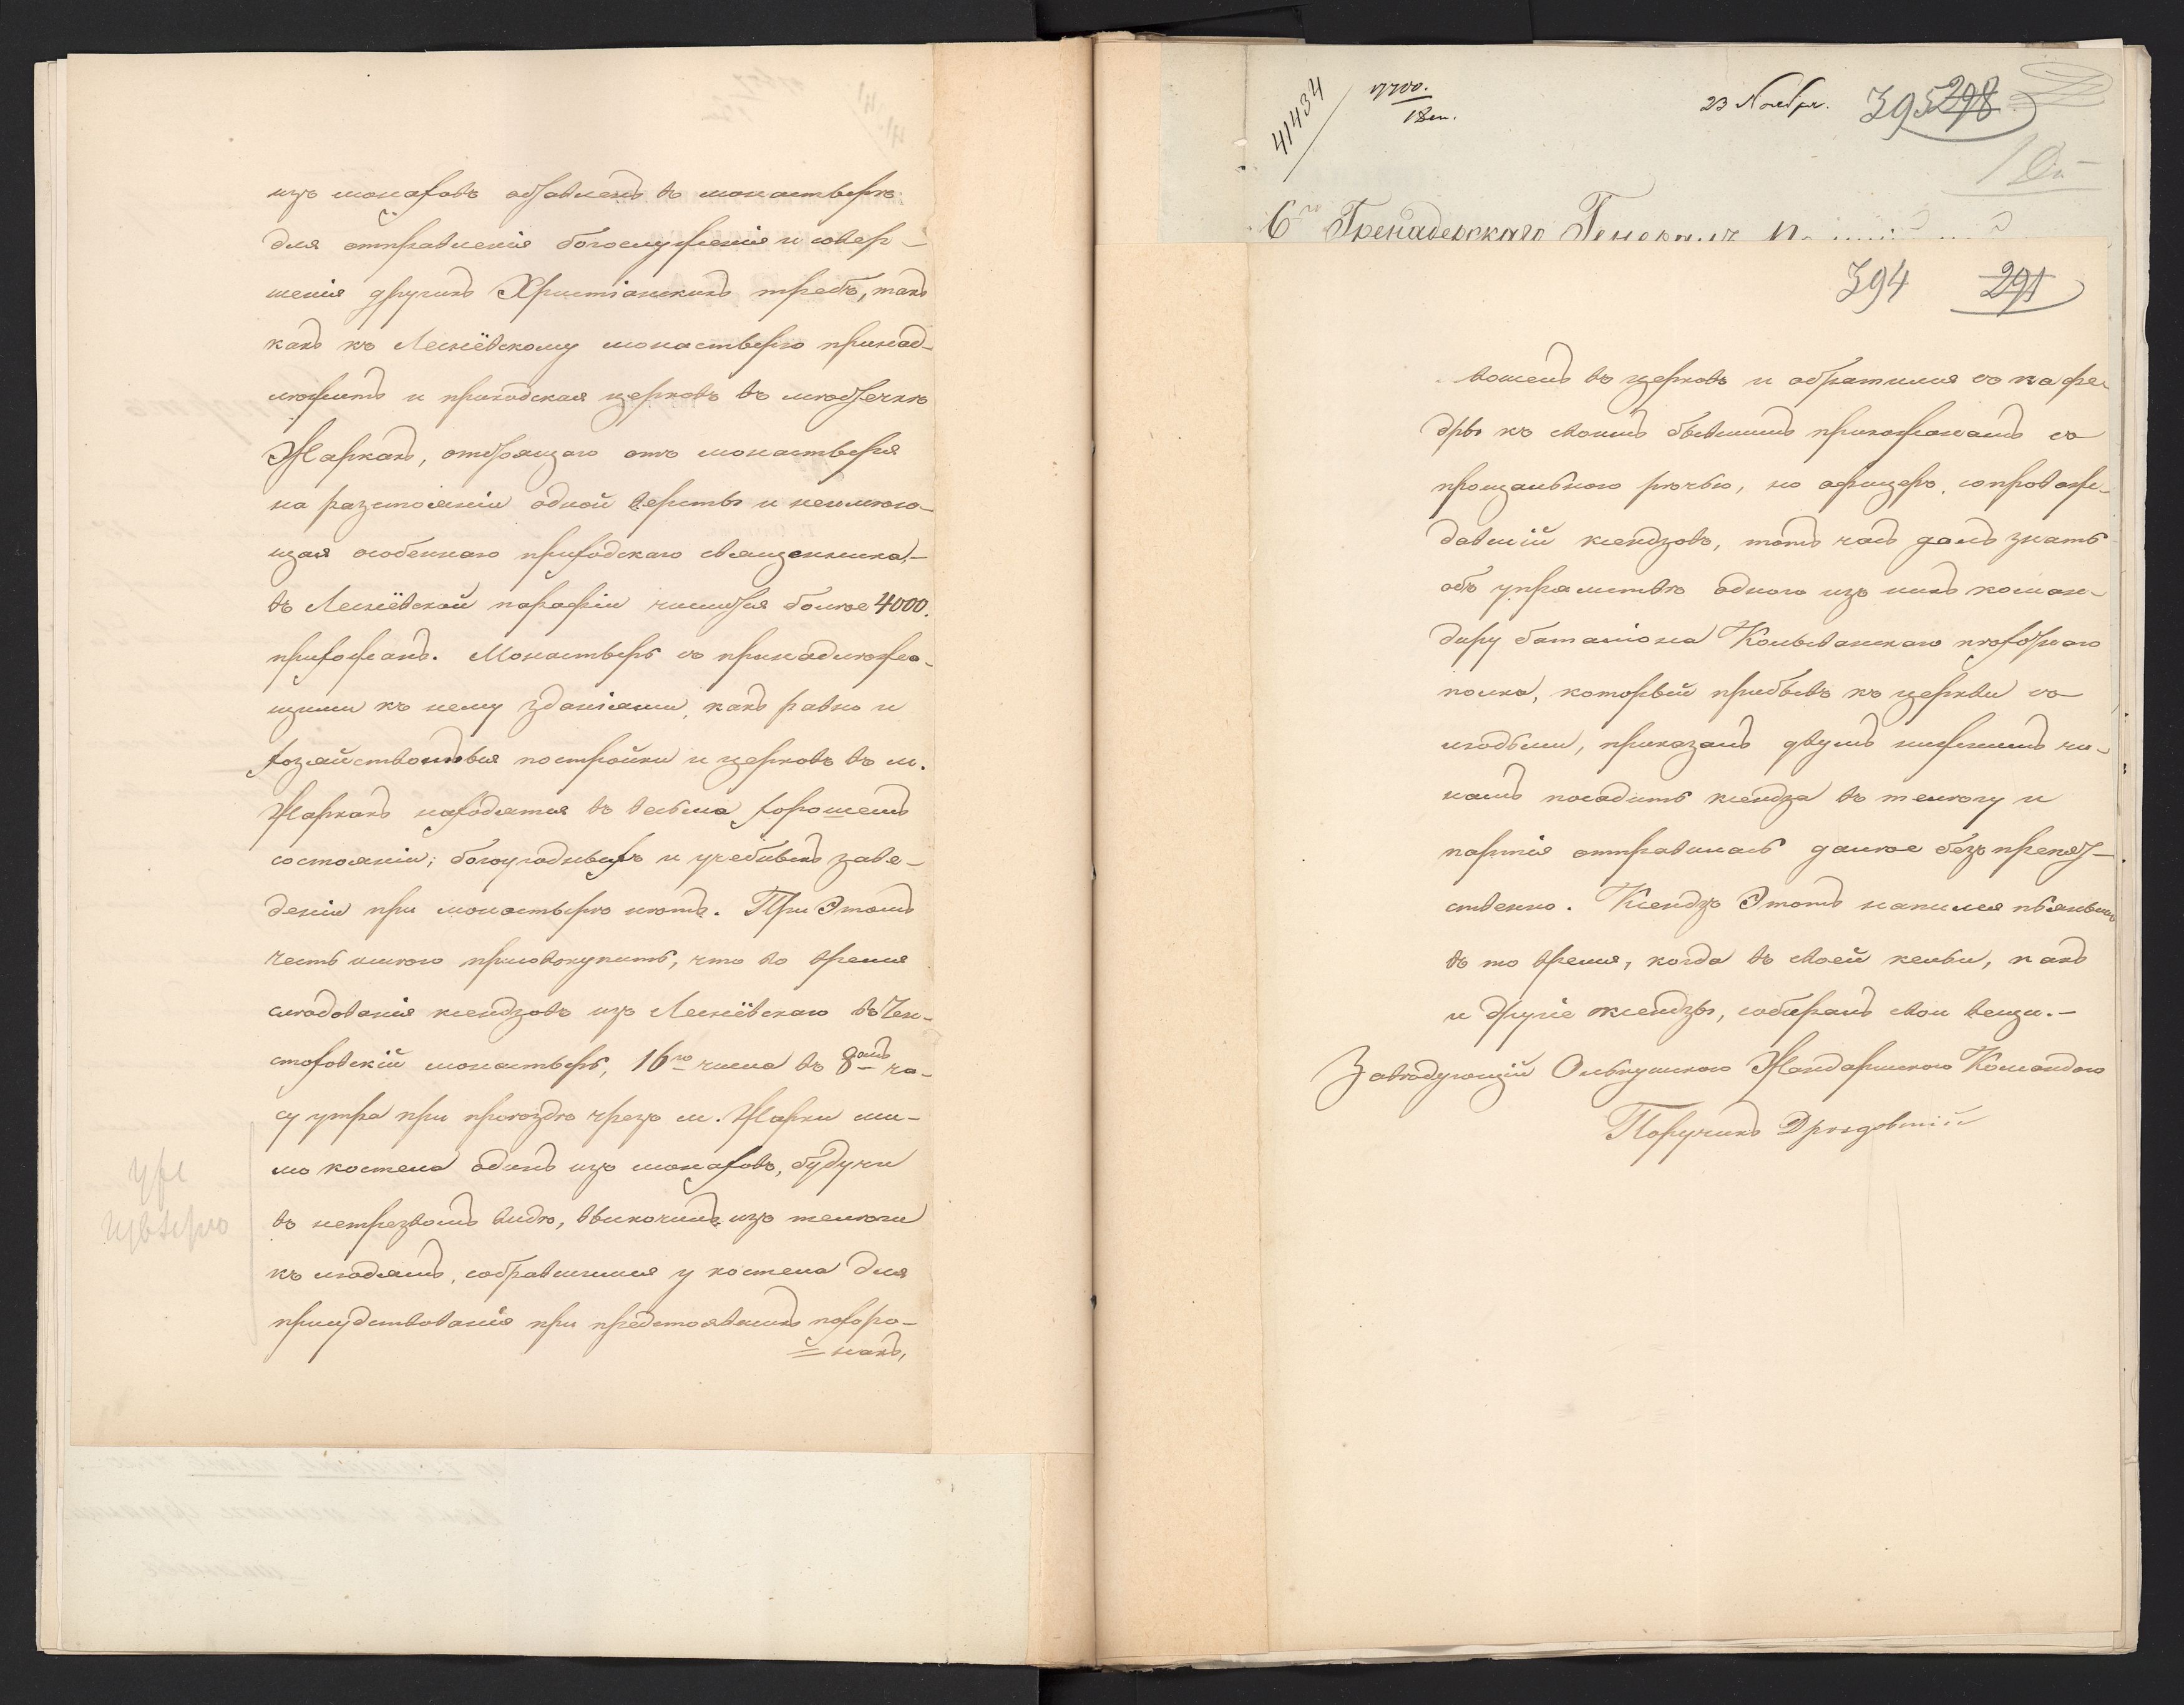 изъ монаховъ оставленъ въ монастырѣ
для отправленія богослуженія и совер-
шенія другихъ Христіанскихъ требъ, такъ
какъ къ Леснёвскому монастырю принад-
лежитъ и приходская церковь въ мѣстечкѣ
Жаркахъ, отстоящаго отъ монастыря
на разстояніи одной версты и неимѣю-
щая особеннаго приходскаго священника,-
въ Леснёвской парафіи числится болѣе 4000.
прихожанъ. Монастырь со принадлежа-
щими къ нему зданіями, какъ равно и
хозяйственныя постройки и церковь въ м.
Жаркахъ находятся въ весьма хорошемъ
состояніи; богоугодныхъ и учебныхъ заве-
деній при монастырѣ нѣтъ. При Этомъ
честь имѣю присовокупить, что во время
слѣдованія ксендзовъ изъ Леснёвскаго въ Чен-
стоховскій монастырь, 16го числа въ 8омъ ча-
су утра при проѣздѣ чрезъ м. Жарки ми-
мо костела одинъ изъ монаховъ, будучи
въ нетрезвомъ видѣ, выскочилъ изъ телѣги
къ людямъ, собравшимся у костела для
присудствованія при предстоявшихъ похоро-
нахъ,
41434
23 Ноября.
395 298
6го Гренадерскаго
394 291
вошелъ въ церковь и обратился съ кафе-
дры къ своимъ бывшимъ прихожанамъ съ
прощальною рѣчью, но офицеръ, сопровож-
давшій ксендзовъ, тотъ часъ далъ знать
объ упрямствѣ одного изъ нихъ коман-
диру баталіона Колыванскаго пѣхотнаго
полка, который прибывъ къ церкви съ
людьми, приказалъ двумъ нижнимъ чи-
намъ посадить ксендза въ телѣгу и
партія отправилась далѣе безъ препят-
ственно. Ксендзъ Этотъ напился пьянымъ
въ то время, когда въ своей кельи, какъ
и другіе ксендзы, собиралъ свои вещи.-
Завѣдующій Олькушскою Жандармскою Командою
Поручикъ